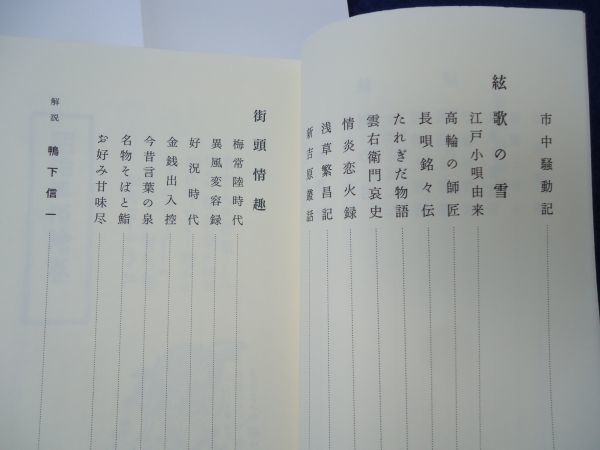 市中騒動記
絃歌の雪
江戸小唄由来
高輪の師匠
長唄銘々伝
たれぎだ物語
雲右衛門哀史
情炎恋火録
浅草繁昌記
新吉原叢話
街頭情趣
梅常陸時代
異風変容録
好況時代
金銭出入控
今昔言葉の泉
名物そばと鮨
お好み甘味尽
解説 鴨下信一